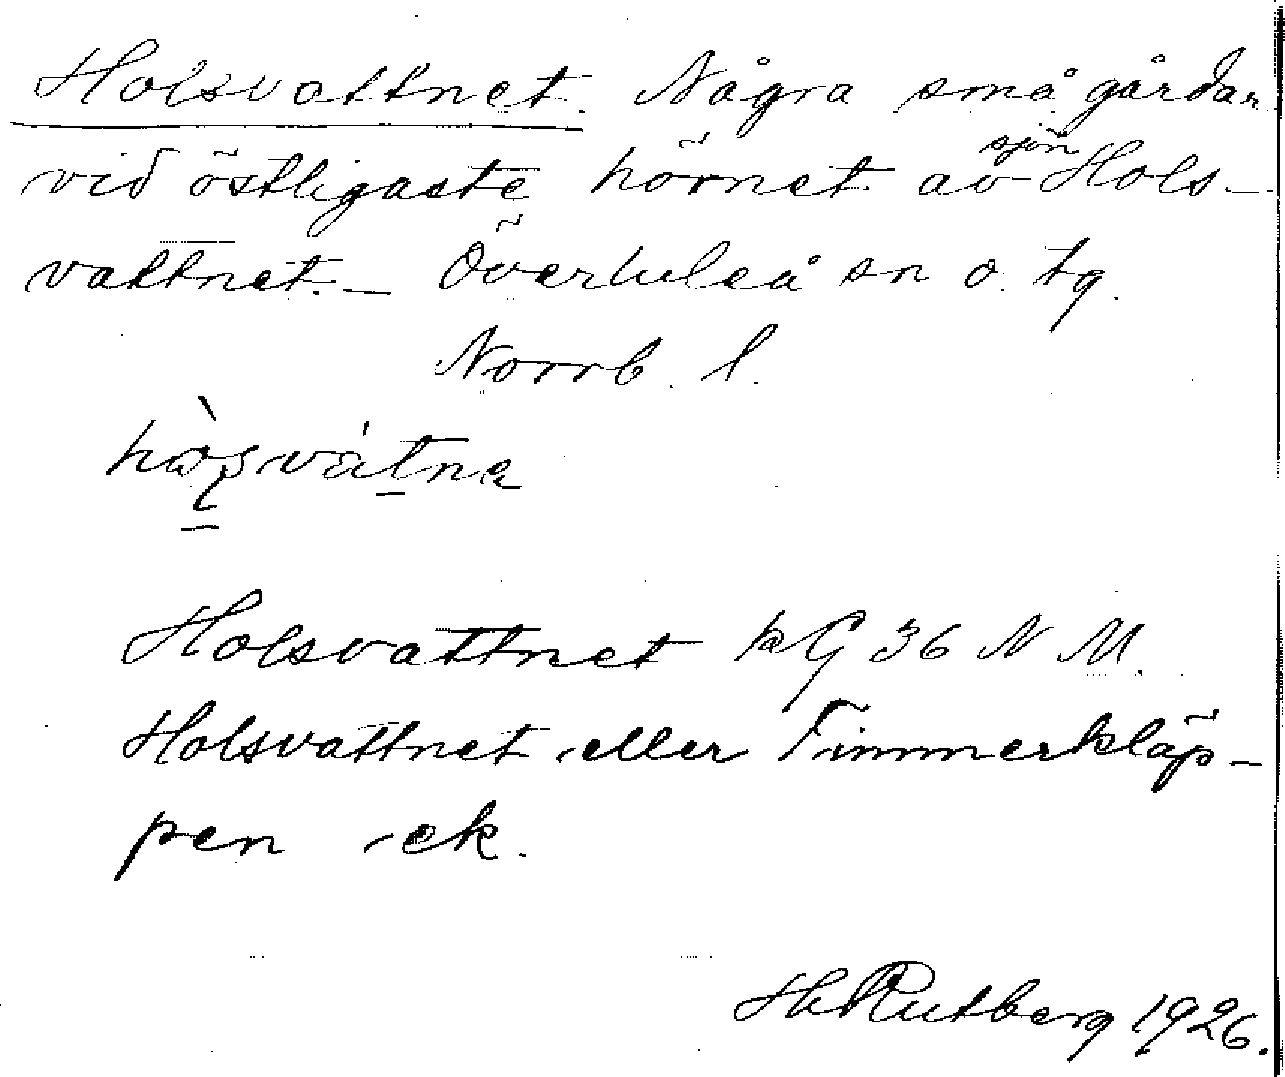 Holsvattnet. Några små gårdar
vid östligaste hörnet av sjön Hols-
vattnet. — Överluleå sn o. tg.
Norrb. l.
Holsvattnet kG 36 N M.
Holsvattnet eller Timmerkläp-
pen ek.
Hl Rutberg 1926.